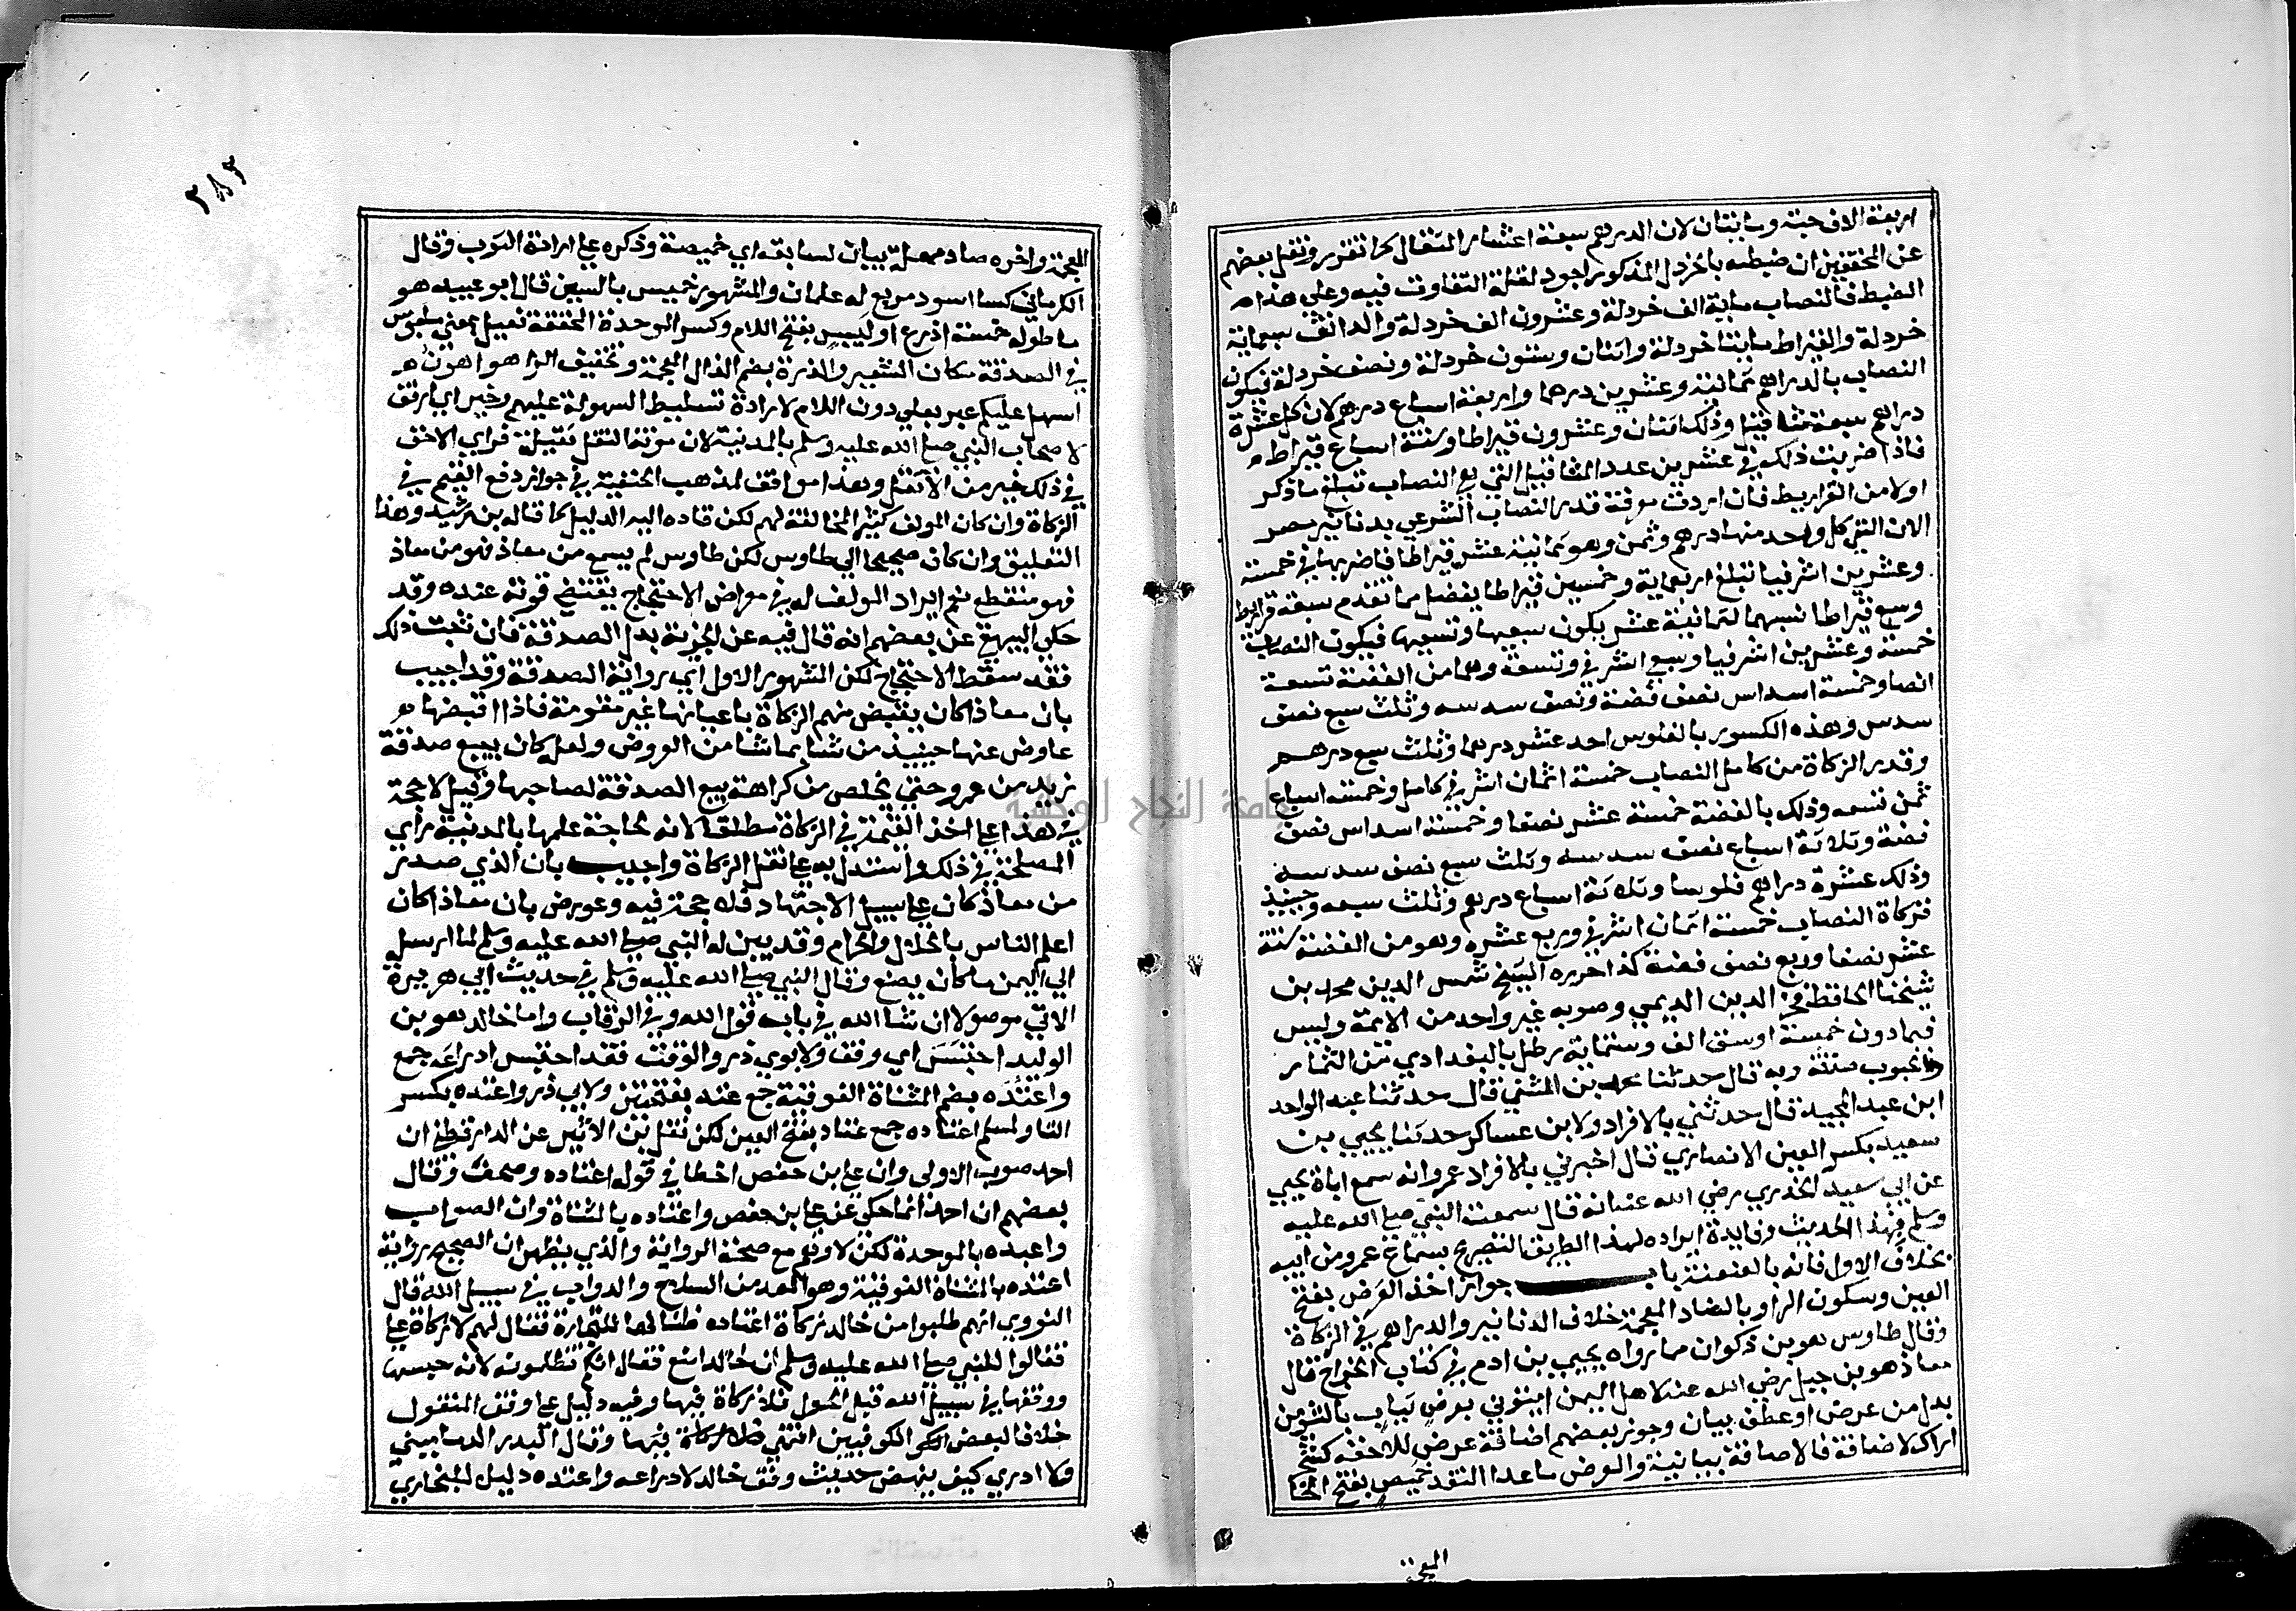 اربعة الاف حبة ومايتان لان الدرهم سبعة اعشار المثقال كما تقرر ونقل بعضهم
عن المحققين ان ضبطه بالخردل المذكور اجود لقلة التفاوت فيه وعلي هذا
الضبط فالنصاب ماية الف خردلة وعشرون الف خردلة والدانق سبماية
خردلة والقيراط مايتا خردلة واثنان وستون خردلة ونصف خردلة فيكون
النصاب بالدراهم ثمانية وعشرين درهما واربعة اسباع درهم لان كل عشرة
دراهم سبعة مثاقيل وذلك اثنان وعشرون قيراطا وستة اسباع قيراط
فاذا ضربت ذلك في عشرين عدد المثاقيل التي هي النصاب تبلغ ما ذكر
اولا من القراريط فان اردت معرفة قدر النصاب الشرعي بدنانير مصر
الان التي كل واحد منها درهم وثمن وهو ثمانية عشر قيراطا فاضربها في خمسة
وعشرين اشرفيا تبلغ اربعماية وخمسين قيراطا يفضل مما تقدم سبعة قراريط
وسبع قيراط انسبهما لثمانية عشر يكون سبعها وتسعها فيكون النصاب
خمسة وعشرين اشرفيا وسبع اشرفي وتسعه وهما من الفضة تسعة
انصا وخمسة اسداس نصف فضة ونصف سدسه وثلث سبع نصف
سدس وهذه الكسور بالفلوس احد عشر درهما وثلث سبع درهم
وقدر الزكاة من كامل النصاب خمسة اثمان اشرفي كامل وخمسة اسباع
ثمن تسعه وذلك بالفضة خمسة عشر نصفا وخمسة اسداس نصف
فضة وثلاثة اسباع نصف سدسه وثلث سبع نصف سدسه
وذلك عشرة دراهم فلوسا وثلاثة اسباع درهم وثلث سبعه وحينيذ
فزكاة النصاب خمسة اثمان اشرفي وربع عشره وهو من الفضة ستة
عشر نصفا وربع نصف فضة كذا حرره الشيخ شمس الدين محمد بن
شيخنا الحافظ فخر الدين الديمي وصوبه غير واحد من الايمة وليس
فيما دون خمسة اوسق الف وستماية رطل بالبغدادي من الثمار
والحبوب صدقة وبه قال حدثنا محمد بن المثني قال حدثنا عبد الواحد
ابن عبد المجيد قال حدثني بالافراد ولابن عساكر حدثنا يحيي بن
سعيد بكسر العين الانصاري قال اخبرني بالافراد عمرو انه سمع اباه يحيي
عن ابي سعيد الخدري رضي الله عنه انه قال سمعت النبي صلي الله عليه
وسلم بهذا الحديث وفايدة ايراده لهذا الطريق التصريح بسماع عمرو من ابيه
بخلاف الاول فانه بالعنعنة باب جواز اخذ العرض بفتح
العين وسكون الرا وبالضاد المعجمة خلاف الدنانير والدراهم في الزكاة
وقال طاوس هو بن ذكوان مما رواه يحيي بن ادم في كتاب الخراج قال
معاذ هو بن جبل رضي الله عنه لاهل اليمن ايتوني بعرض ثياب بالتنوين
بدل من عرض او عطف بيان وجوز بعضهم اضافة عرض للاحقه كشجر
اراك لاضافة فالاضافة بيانية والعرض ما عدا النقد خميص بفتح الخا
المعجمة
المعجمة واخره صاد مهملة بيان لسابقه اي خميصة وذكره علي ارادة الثوب وقال
الكرماني كسا اسود مربع له علمان والمشهور خميس بالسين قال ابو عبيد هو
ما طوله خمسة اذرع او لبيس بفتح اللام وكسر الموحدة المخففة فعيل بمعني ملبوس
في الصدقة مكان الشعير والذرة بضم الذال المعجمة وتخفيف الرا هو اهون
اسهل عليكم عبر بعلي دون اللام لارادة تسليط السهولة عليهم وخير اي ارفق
لاصحاب النبي صلي الله عليه وسلم بالمدينة لان مونة النقل ثقيلة فراي الاخف
في ذلك خير من الاثقل وهذا موافق لمذهب الحنفية في جواز دفع القيم في
الزكاة وان كان المولف كثير المخالفة لهم لكن قاده اليه الدليل كما قاله بن رشيد وهذا
التعليق وان كان صحيحا الي طاوس لكن طاوس لم يسمع من معاذ فهو من معاذ
فهو منقطع نعم ايراد المولف له في معرض الاحتجاج يقتضي قوته عنده وقد
حكي البيهقي عن بعضهم انه قال فيه عن الجزية بدل الصدقة فان ثبت ذلك
فقد سقط الاحتجاج لكن المشهور الاول اي رواية الصدقة وقد اجيب
بان معاذا كان يقبض منهم الزكاة باعيانها غير مقومة فاذا اقبضها
عاوض عنها حينيذ من شا بما شا من العروض ولعله كان يبيع صدقة
زيد من عمرو حتي يخلص من كراهة بيع الصدقة لصاحبها وقيل لا حجة
في هذا علي اخذ القيمة في الزكاة مطلقا لانه لحاجة علمها بالمدينة راي
المصلحة في ذلك واستدل به علي نقل الزكاة واجيب بان الذي صدر
من معاذ كان علي سبيل الاجتهاد فلا حجة فيه وعورض بان معاذا كان
اعلم الناس بالحلال والحرام وقد بين له النبي صلي الله عليه وسلم لما ارسله
الي اليمن ما كان يصنع وقال النبي صلي الله عليه وسلم في حديث ابي هريرة
الاتي موصولا ان شا الله في باب قول الله وفي الرقاب واما خالد هو بن
الوليد احتبس اي وقف ولابوي ذر والوقت فقد احتبس ادراعه جمع
واعتده بضم المثناة الفوقية جمع عتد بفتحتين ولابي ذر واعتده بكسر
التا ولمسلم اعتاده جمع عتاد بفتح العين لكن نقل بن الاثير عن الدارقطني ان
احمد صوب الاولي وان علي بن حفص اخطا في قوله اعتاده وصحف وقال
بعضهم ان احمد انما حكي عن علي بن حفص واعتاده بالمثناة وان الصواب
واعبده بالموحدة لكن لا وهم مع صحة الرواية والذي يظهر ان الصحيح رواية
اعتده بالمثناة الفوقية وهو المعد من السلاح والدواب في سبيل الله قال
النووي انهم طلبوا من خالد زكاة اعتاده ظنا انها للتجارة فقال لهم لا زكاة علي
فقالوا للنبي صلي الله عليه وسلم ان خالدا منع فقال انكم تظلمونه لانه حبسها
ووقفها في سبيل الله قبل الحول فلا زكاة فيها وفيه دليل علي وقف المنقول
خلافا لبعض الكوفيين انتهي فيها وقال البدر الدماميني
ولا ادري كيف ينهض حديث وقف خالد لادراعه واعتده دليل للبخاري
٢٨٣
جامعة النجاح الوطنية